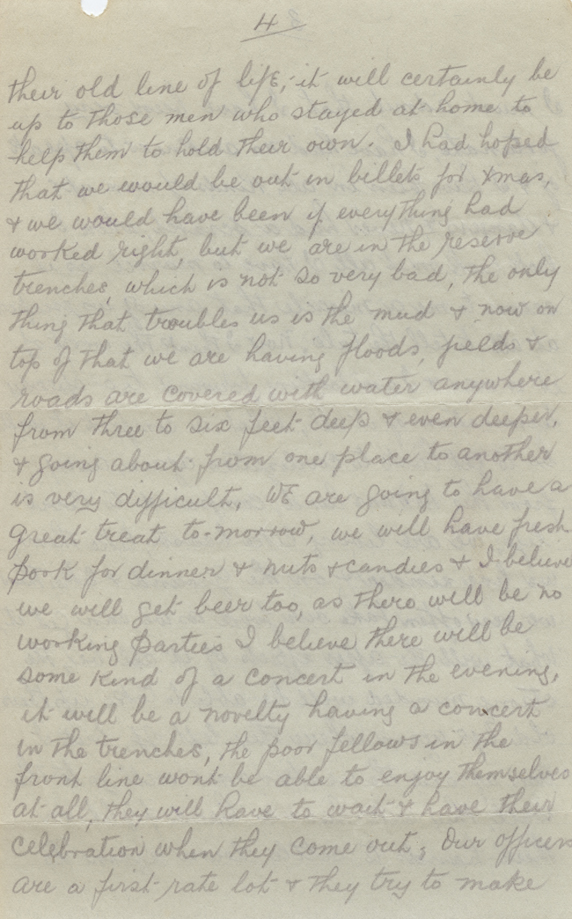 4
their old line of life, it will certainly be
up to those men who stayed at home to
help them to hold their own. I had hoped
that we would be out in billets for Xmas,
& we would have been if everything had
worked right, but we are in the reserve
trenches, which is not so very bad, the only
thing that troubles us is the mud & now on
top of that we are having floods, fields &
roads are covered with water anywhere
from three to six feet deep & even deeper,
& going about from one place to another
is very difficult. WE are going to have a
great treat to-morrow, we will have fresh
pork for dinner & nuts & candies & I believe
we will get beer too, as there will be no
working parties I believe there will be
some kind of a concert in the evening,
it will be a novelty having a concert
in the trenches, the poor fellows in the
front line wont be able to enjoy themselves
at all, they will have to wait & have their
celebration when they come out; Our officers
are a first-rate lot & they try to make